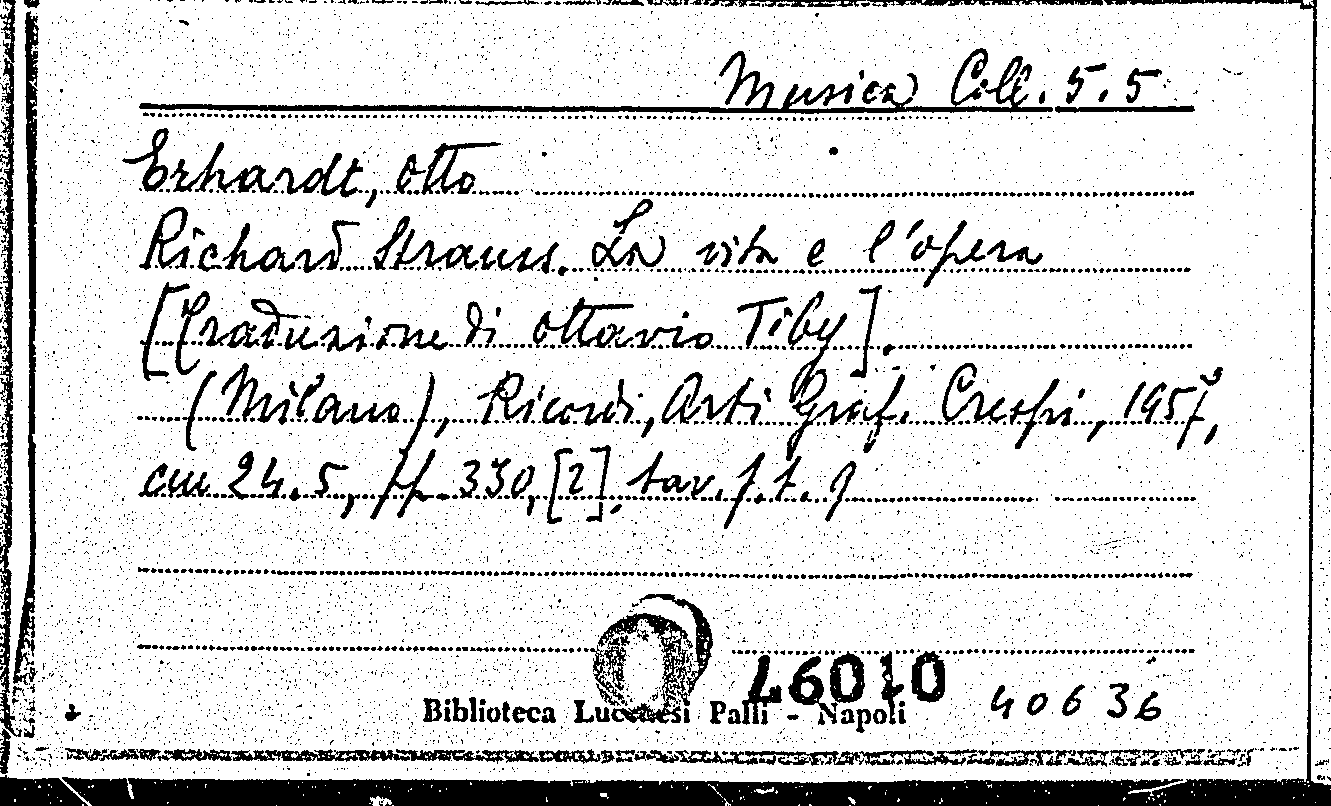 Musica Coll. 5.5
Erhardt, Otto
Richard Strauss. La vita e l'opera
[Traduzione di Ottavio Tiby].
(Milano), Ricordi, Arti Graf. Crespi, 1957,
cm 24.5, pp. 330, [2]. tav. f. t. 9
46010
Biblioteca Lucchesi Palli - Napoli
40636